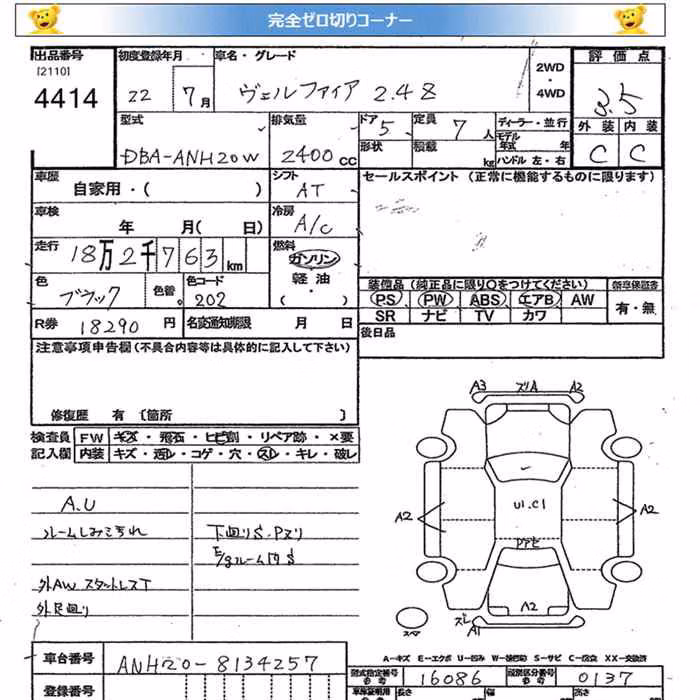 完全ゼロ切りコーナー
出品番号 [2110] 4414
初度登録年月 22 7月
車名・グレード ヴェルファイア 2.4Z
2WD・4WD
評価点 3.5
型式 DBA-ANH20W
排気量 2400cc
ドア 5 形状
定員 7人 積載 kg
ディーラー・並行
モデル年式 年
ハンドル 左・右
外装 C 内装 C
車歴 自家用・( )
シフト AT
セールスポイント (正常に機能するものに限ります)
車検 年 月( 日)
冷房 A/C
走行 18万2千763km
燃料 ガソリン 軽油 ・( )
色 ブラック 色替。 色コード 202
装備品 (純正品に限り○をつけてください)
新車保証書 有・無
PS PW ABS エアB AW
SR ナビ TV カワ
R券 18290円 名変通知期限 月 日
後日品
注意事項申告欄(不具合内容等は具体的に記入して下さい)
修復歴 有 [箇所 ]
検査員記入欄
FW キズ・飛石・ヒビ割・リペア跡・×要
内装 キズ・汚レ・コゲ・穴・スレ・キレ・破レ
A.U
ルームしみこぎれ
下廻りS・Pヌリ
E/gルーム内S
外AW スタットレスT
外足廻り
A3 ズリA A2
A2
U1.C1
A2
Fアビ
A2
ズレ A1
スペア
A-キズ E-エクボ U-凹み W-補修跡 S-サビ C-腐食 XX-交換済
車台番号 ANH20-8134257
型式指定番号 参考 16086
類別区分番号 参考 0137
登録番号
車庫証明用 参考 長さ 幅 高さ